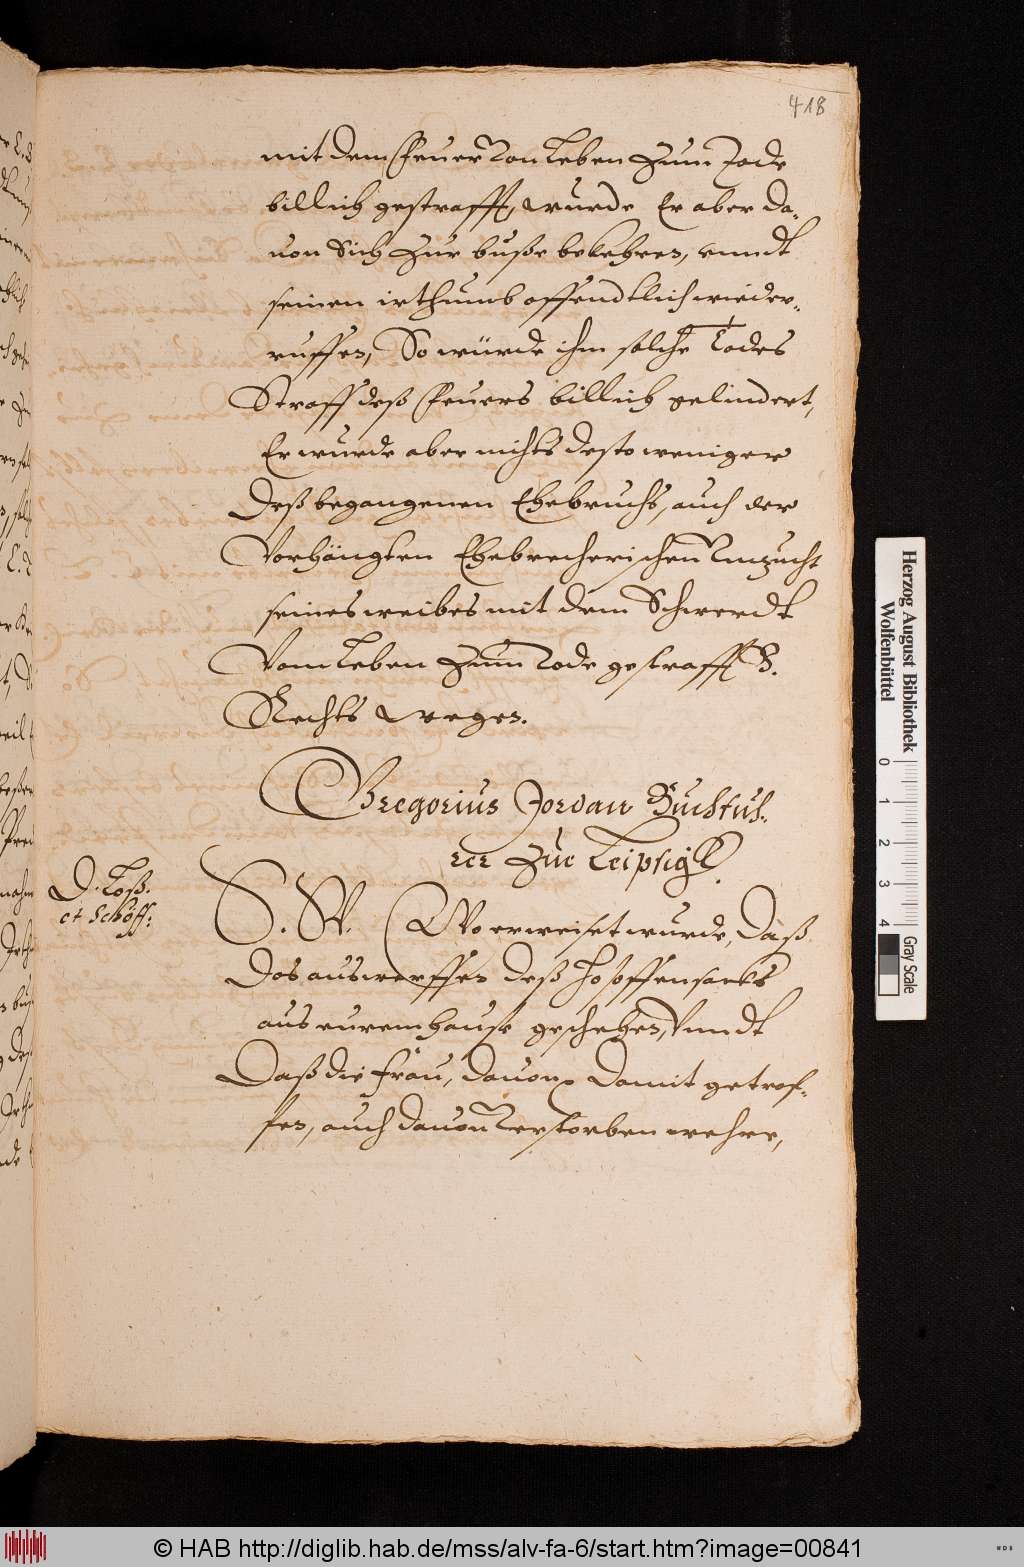 418
mit dem Feuer von Leben zum Tode
billich gestrafft, wurde Er aber da-
uon Sich zur buße bekehren, unndt
seinen irthumb offendtlich wieder-
ruffen, So würde ihm solche Todes
Straff deß Feuers billich gelindert,
Er wurde aber nichts desto weniger
deß begangenen Ehebruchs, auch der
Vorhängten Ehebrecherischen Unzucht
seines weibes mit dem Schwerdt
Vom Leben zum Tode gestrafft V.
Rechts wegen.
Gregorius Jordan Buchfüh-
rer zue Leipsigk.
D. Loß.
et Schöff:
S. W. Wo erweiset wurde, Daß
das auswerffen deß
aus eurem hause geschehen, Vnndt
Daß die Frau, dauon damit getrof-
fen, auch dauon verstorben wehre,
Herzog August Bibliothek
Wolfenbüttel
0 1 2 3 4
Gray Scale
© HAB http://diglib.hab.de/mss/alv-fa-6/start.htm?image=00841
WDB